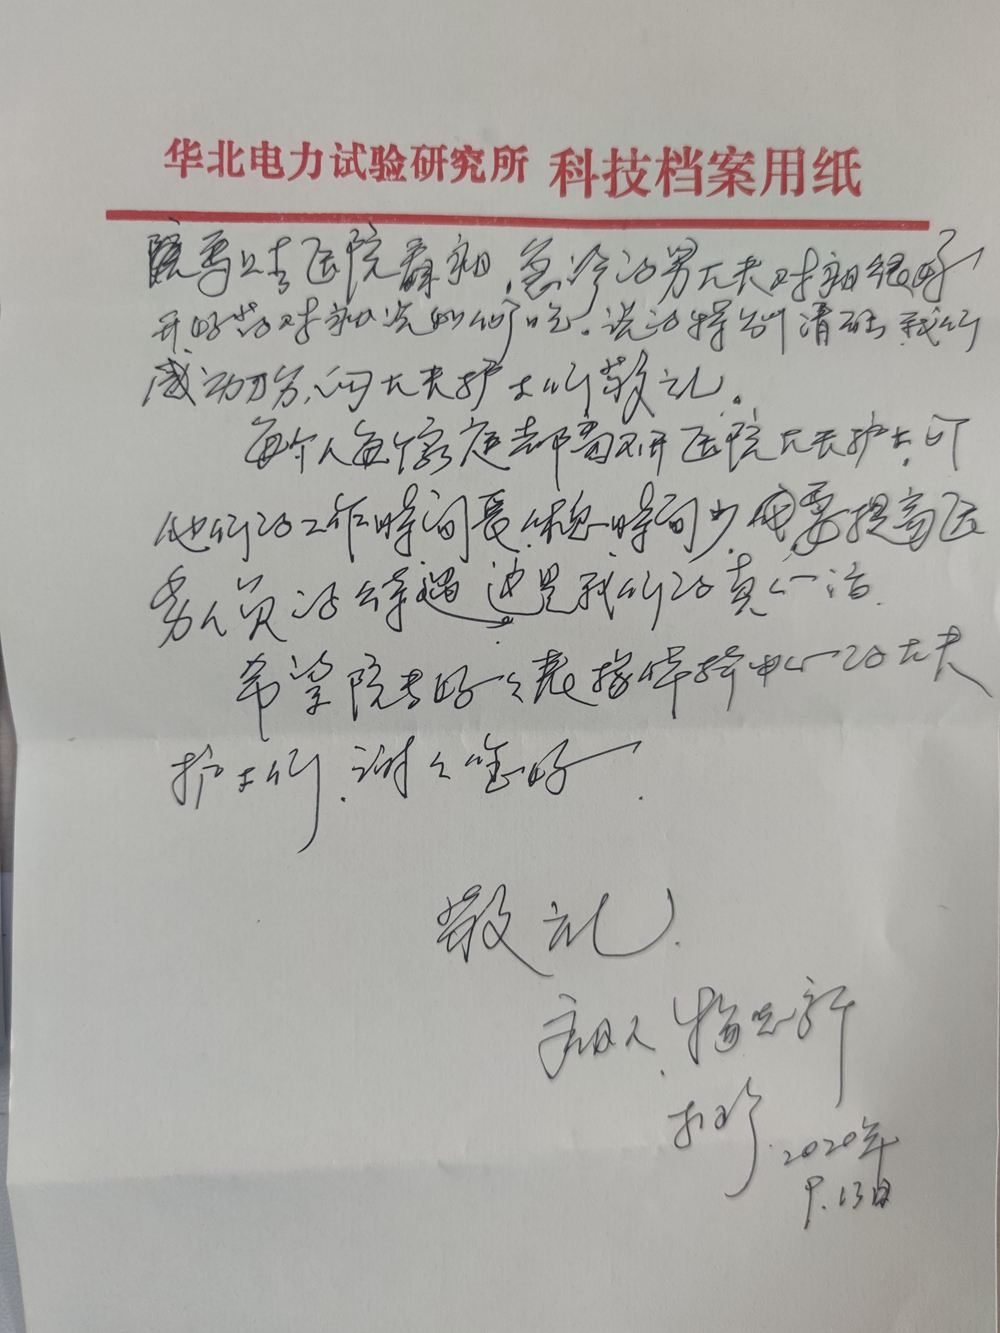 华北电力试验研究所 科技档案用纸
医院看病,急诊的男大夫对病很好
开的药对病说的们吃,说的特别清 我们
感动万分,向大夫护士们敬礼。
每个人每个家庭都离不开医院大夫护士,可
他们的工作时间长,休息时间少,需要提高医
务人员的待遇,这是我们的真心话.
希望院长好好表扬 中心的大夫
护士们,谢谢
敬礼.
病人,梅志新
2020年
9.13日